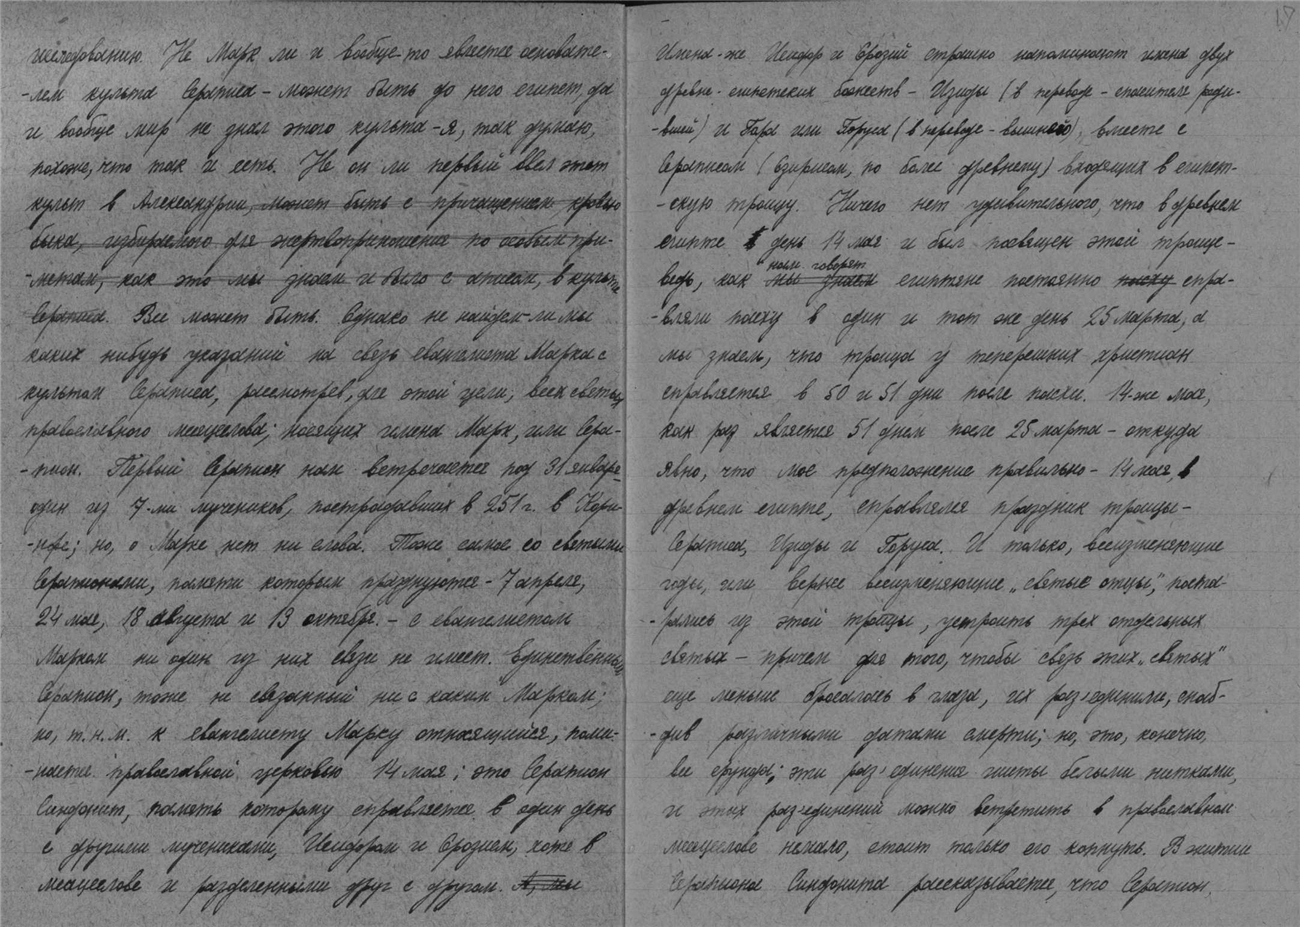 исследованию. Не Марк ли и вообще-то является основате-
-лем культа Сераписа – может быть до него египет, да
и вообще мир не знал этого культа – я, так думаю,
похоже, что так и есть. Не он ли первый ввел этот
культ в Александрии, может быть с причащением кровью
быка, избираемого для жертвоприношения по особым при-
-метам, как это мы знаем и было с аписом, в культе
Сераписа. Все может быть. Однако не найдем-ли мы
каких нибудь указаний на связь евангелиста Марка с
культом Сераписа, рассмотрев, для этой цели, всех святых
православного месяцеслова, носящих имена Марк, или Сера-
-пион. Первый Серапион нам встречается под 31 января –
один из 7-ми мучеников, пострадавших в 251 г. в Кори-
-нфе; но, о Марке нет ни слова. Тоже самое со святыми
Серапионами, памяти которым празднуются – 7 апреля,
24 мая, 18 августа и 13 октября. – с евангелистом
Марком ни один из них связи не имеет. Единственный
Серапион, тоже не связанный ни с каким Марком;
но, т.н.м. к евангелисту Марку относящийся, поми-
-нается православной церковью 14 мая; это Серапион
Синдонит, память которому справляется в один день
с другими мучениками, Исидором и Ерозием, хотя в
месяцеслове и разделенными друг с другом. А, мы
17
Имена-же Исидор и Ерозий страшно напоминают имена двух
древне-египетских божеств – Изиды (в переводе – спасителя роди-
-вшей) и Гора или Горуса (в переводе – вышнего), вместе с
Сераписом (озирисом, по более древнему) входящих в египет-
-скую троицу. Ничего нет удивительного, что в древнем
египте день 14 мая и был посвящен этой троице –
нам говорят
ведь, как мы знаем египтяне постоянно пасху спра-
-вляли пасху в один и тот же день 25 марта, а
мы знаем, что троица у теперешних христиан
справляется в 50 и 51 дни после пасхи. 14-же мая,
как раз является 51 днем после 25 марта – откуда
явно, что мое предположение правильно – 14 мая, в
древнем египте, справлялся праздник троицы –
Сераписа, Изиды и Горуса. И только, всеизменяющие
годы, или вернее всеизменяющие „святые отцы“, поста-
-рались из этой троицы, устроить трех отдельных
святых – причем для того, чтобы связь этих „святых“
еще меньше бросалась в глаза, их раз'единили, снаб-
-див различными датами смерти; но, это, конечно,
все ерунда; эти раз'единения шиты белыми нитками,
и этих раз'единений можно встретить в православном
месяцеслове немало, стоит только его копнуть. В житии
Серапиона Синдонита рассказывается, что Серапион,